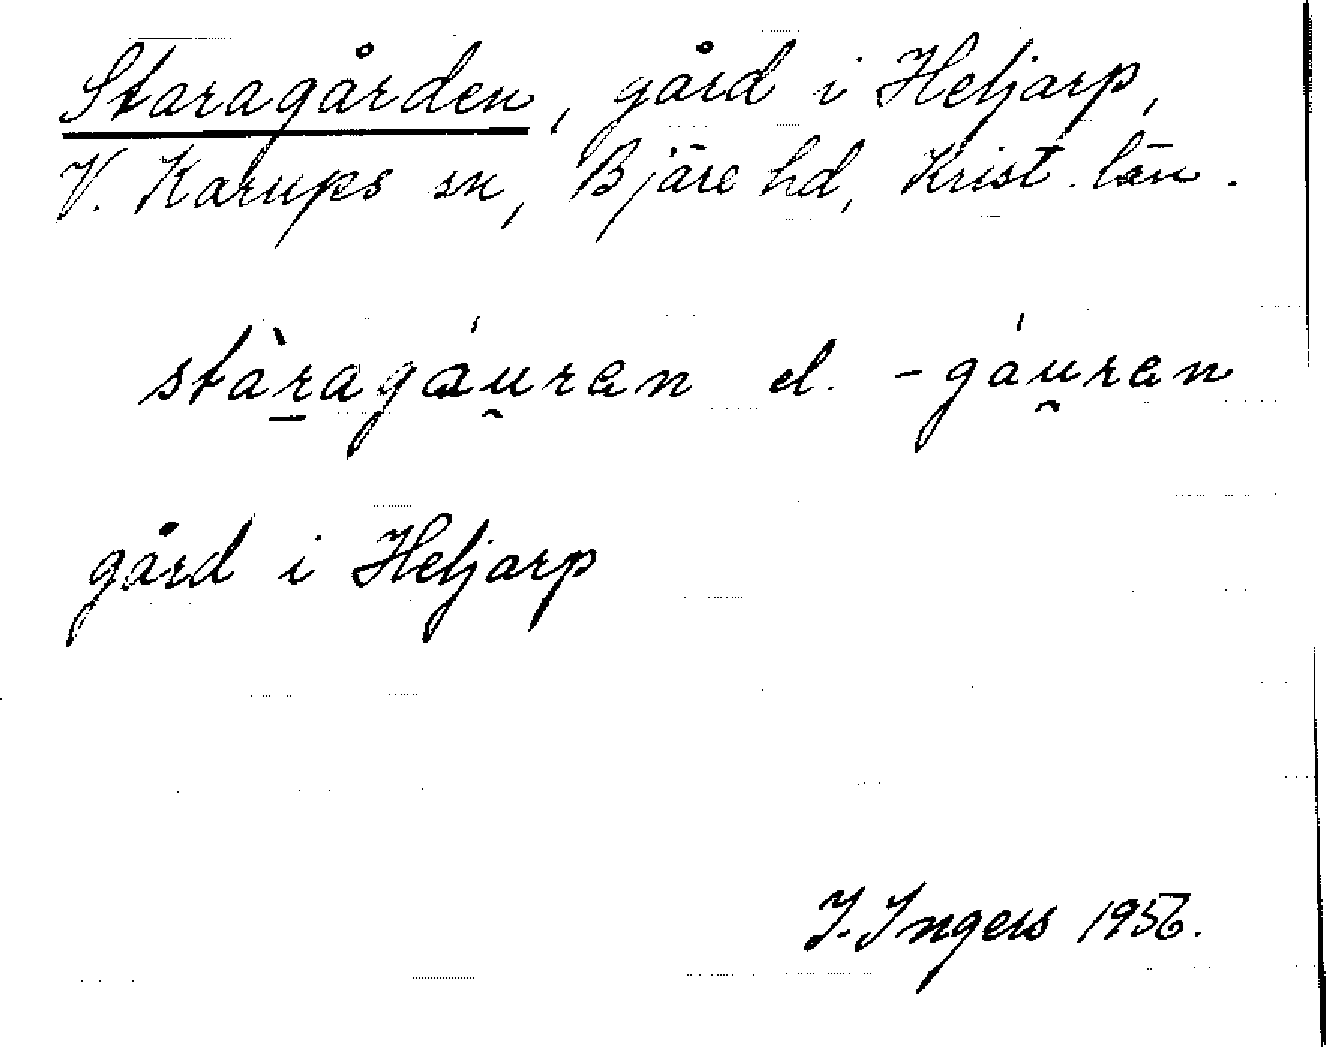 Staragården, gård i Heljarp,
V. Karups sn, Bjäre hd, Krist. län.
stàr̠agáu̯ran el. -gáu̯ran
gård i Heljarp
I. Ingers 1956.